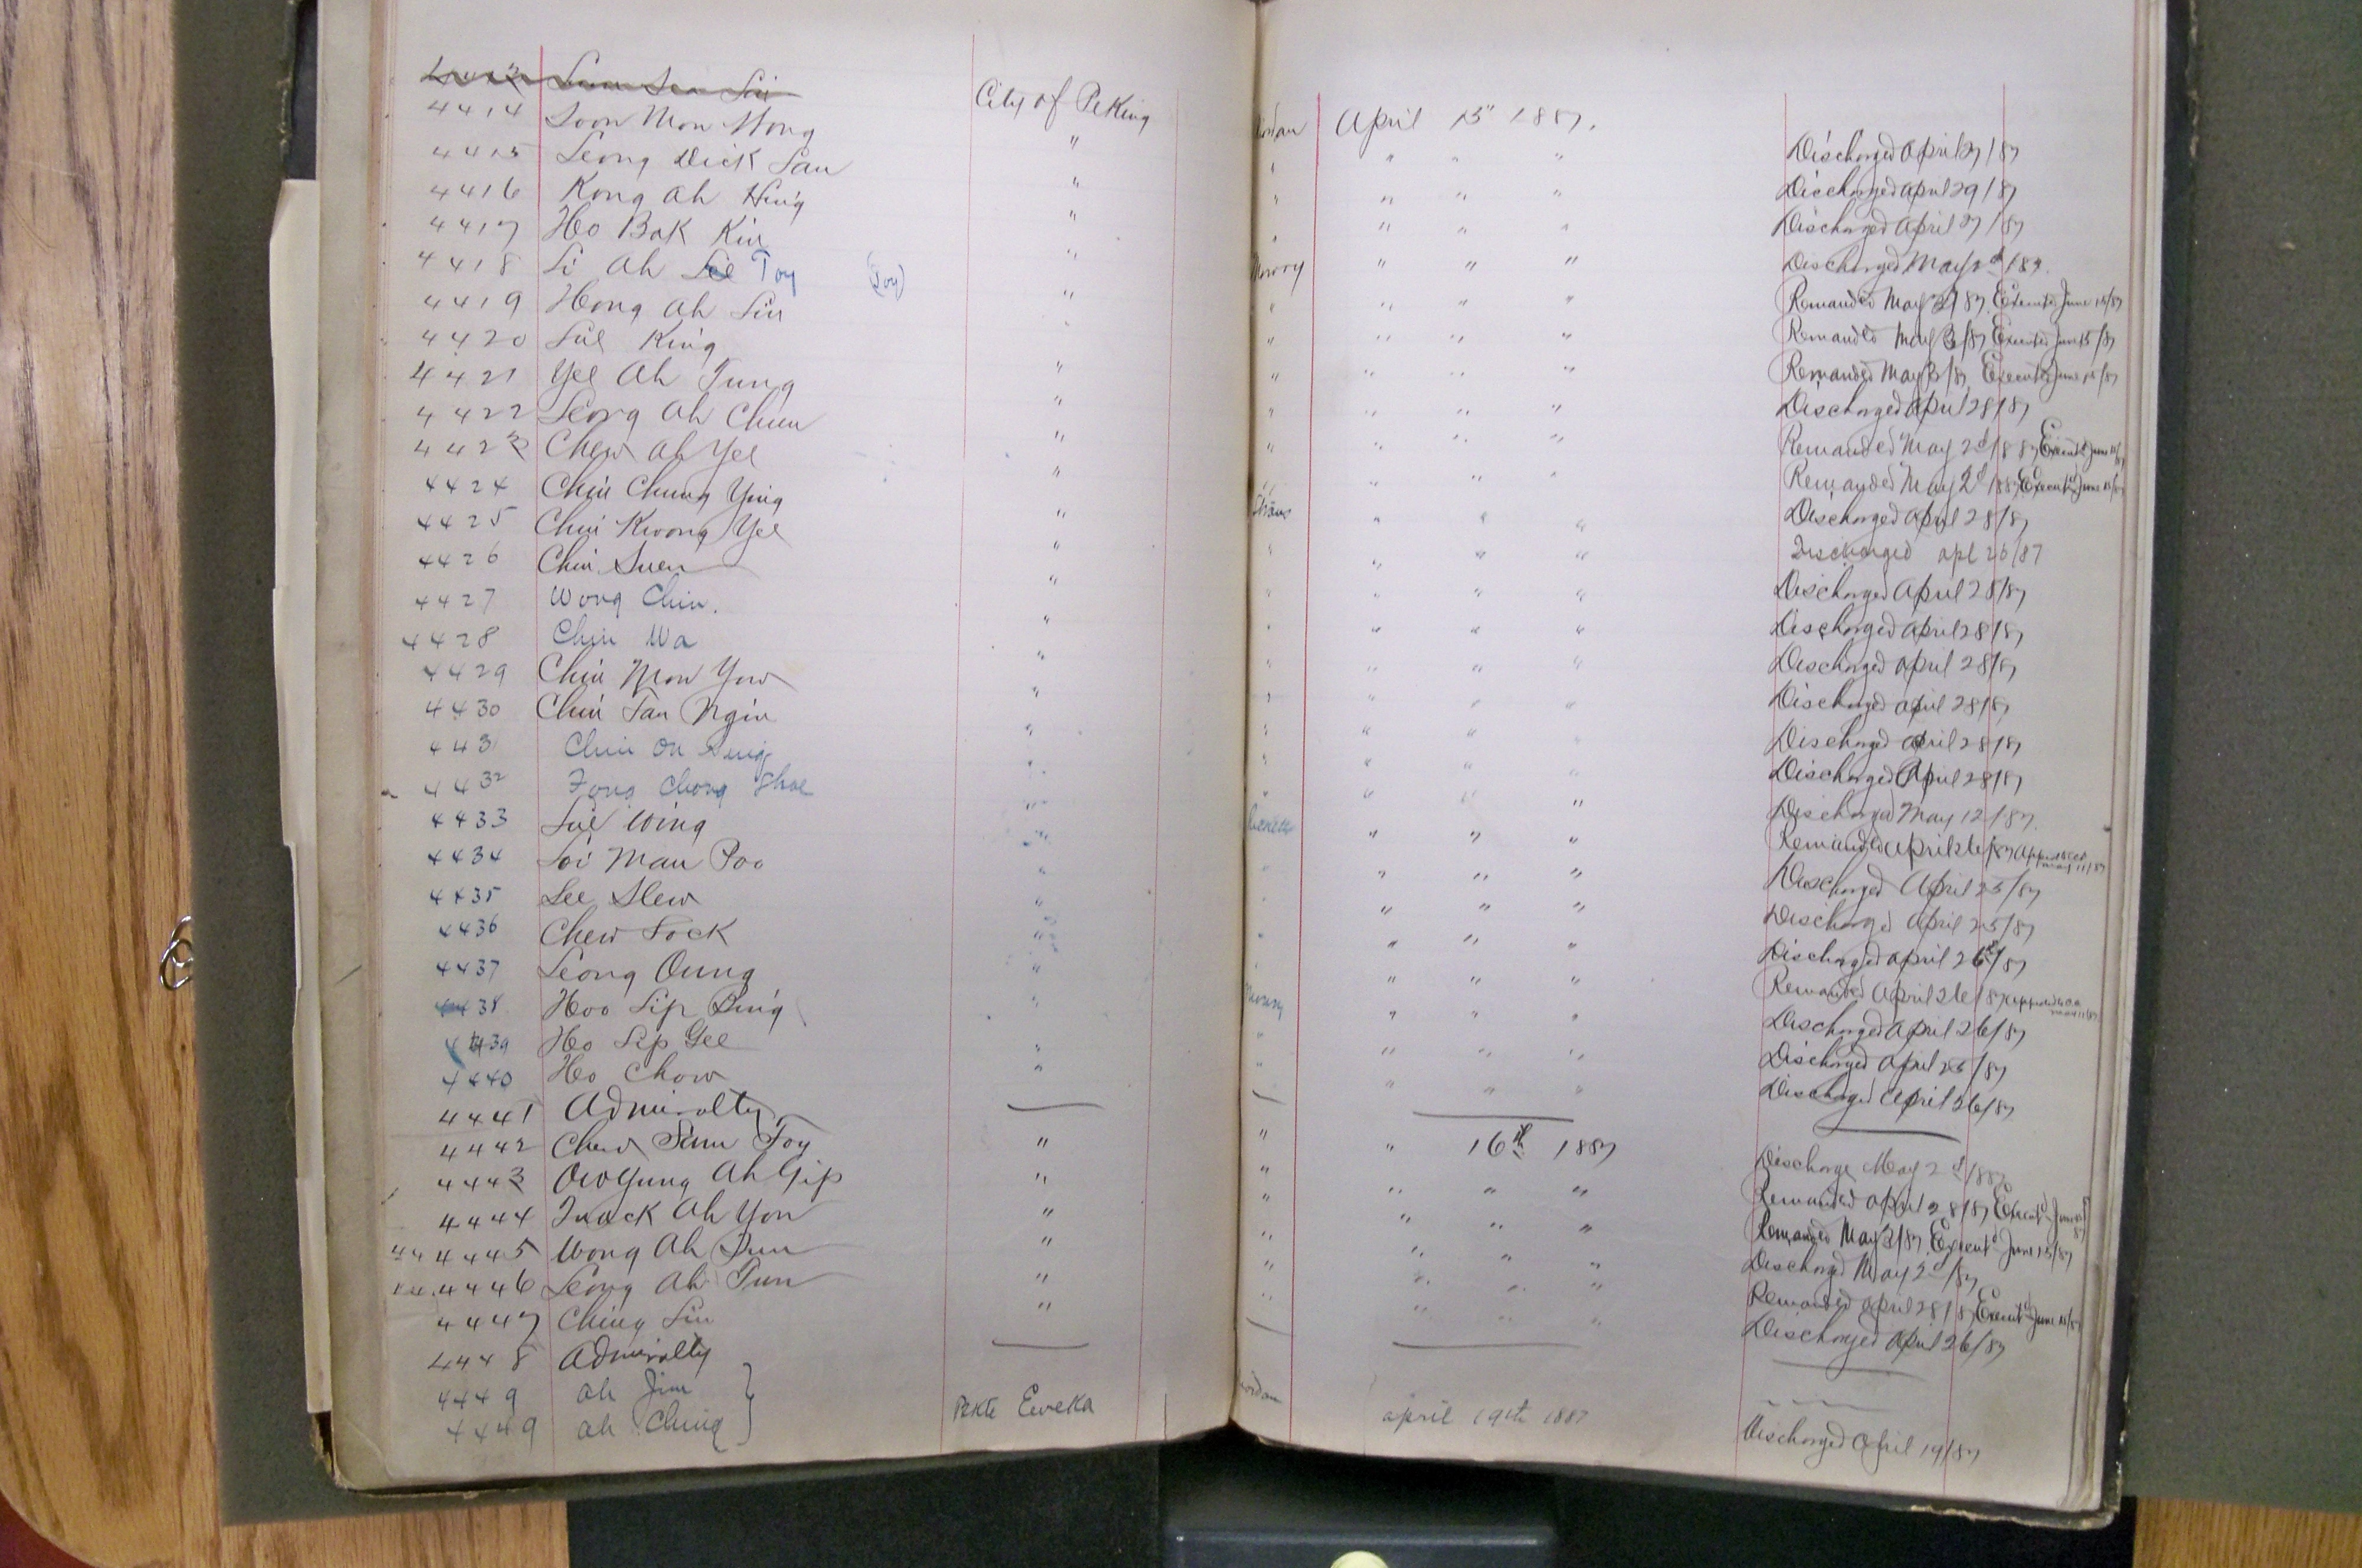 4414 Soon Mon Hong City of Peking Jordan April 15" 1887. Discharged April 27/87
4415 Leong Dick San " " " " " Discharged April 29/87
4416 Kong Ah Hing " " " " " Discharged April 27/87
4417 Ho Bak Kin " " " " " Discharged May 2d/87.
4418 Li Ah Toy (Toy) " Mowry " " " Remanded May 3/87. Executd June 15/87
4419 Hong Ah Sin " " " " " Remanded May 3/87 Executed June 15/87
4420 Sue King " " " " " Remanded May 3/87 Executed June 15/87
4421 Yee Ah Tung " " " " " Discharged April 28/87
4422 Leong Ah Chun " " " " " Remanded May 2d/1887 Executd June 15/87
4423 Chew Ah Yee " " " " " Remanded May 2d/1887 Executd June 15/87
4424 Chin Chung Ying " " " " " Discharged April 28/87
4425 Chin Kwong Yee " " " " Discharged Apl 26/87
4426 Chin Suen " " " " " Discharged April 28/87
4427 Wong Chin. " " " " " Discharged April 28/87
4428 Chin Wa " " " " " Discharged April 28/87
4429 Chin Mon Yow " " " " " Discharged April 28/87
4430 Chin Fan Ngin " " " " " Discharged April 28/87
4431 Chin On " " " " " Discharged April 28/87
4432 Fong Chong " " " " " Discharged May 12/87.
4433 Sue Wing " " " " Remanded April 26/87 Appealed May 11/87
4434 Loi Man Poo " " " " " Discharged April 25/87
4435 Lee Slew " " " " " Discharged April 25/87
4436 Chew Sock " " " " " Discharged April 26th/87
4437 Leong Oung " " " " " Remanded April 26/87 Appealed May 11/87
4438 Hoo Sip Bing " Mowry " " " Discharged April 26/87
4439 Ho Sip Gee " " " " " Discharged April 25/87
4440 Ho Chow " " " " " Discharged April 26/87
4441 Admiralty
4442 Chew Sum Toy " " " 16th 1887 Discharge May 2d/1887
4443 Owyung Ah Gip " " " " " Remanded April 28/87 Executd June 15/87
4444 Ah Yon " " " " " Remanded May 3/87 Executd June 15/87
4445 Wong Ah " " " " " Discharged May 2d/87
4446 Leong Ah " " " " " Remanded April 28/87 Executd June 15/87
4447 Ching Sin " " " " " Discharged April 26/87
4448 Admiralty
4449 Ah Jim
4449 Ah Ching Eureka Jordan April 19th 1887 Discharged April 19/87